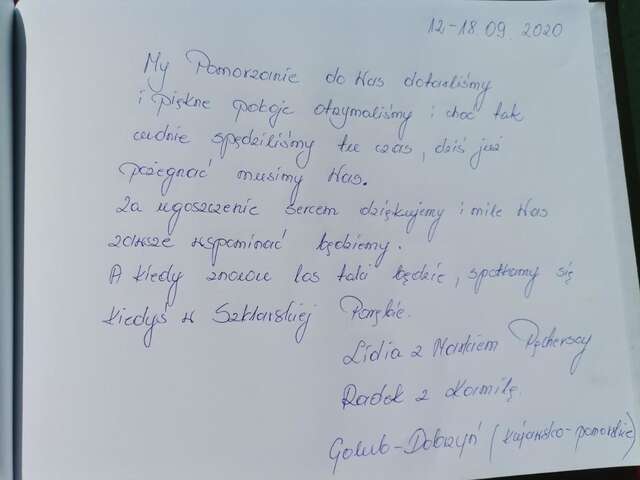 12-18.09.2020
My Pomorzanie do Was dotarliśmy
i piękne pokoje otrzymaliśmy i choć tak
cudnie spędziliśmy tu czas, dziś już
pożegnać musimy Was.
Za ugoszczenie sercem dziękujemy i mile Was
zawsze wspominać będziemy.
A kiedy znowu los taki będzie, spotkamy się
kiedyś w Szklarskiej Porębie.
Lidia z Markiem
Radek z Kamilą.
Golub-Dobrzyń (kujawsko-pomorskie)